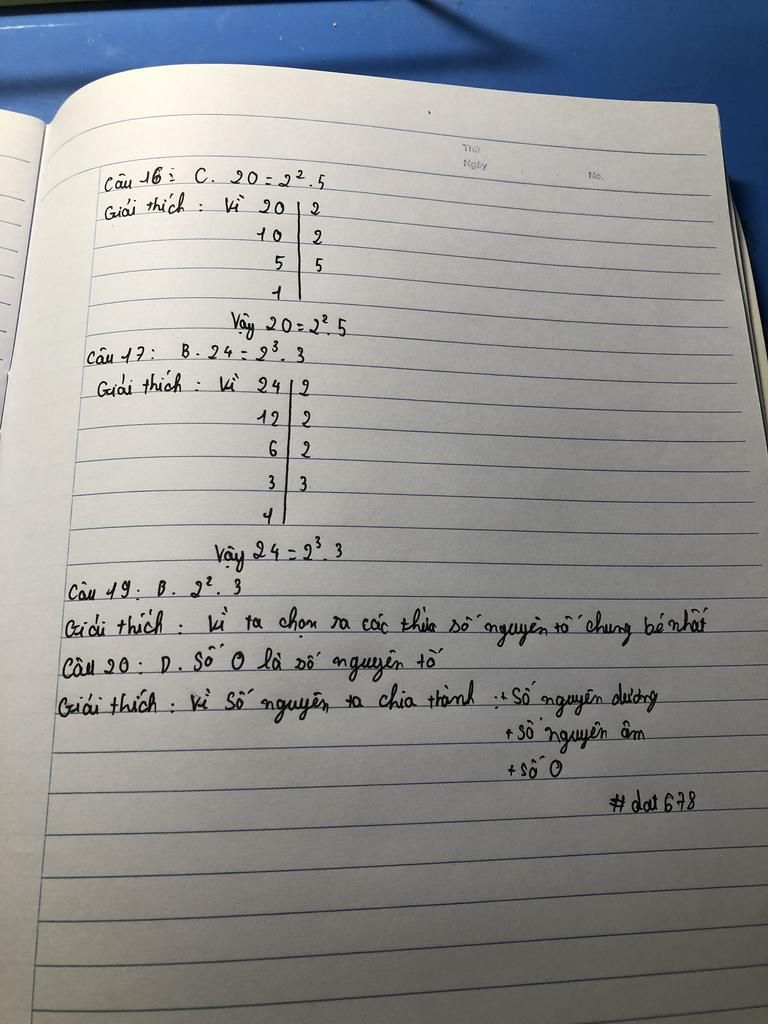 Thứ
Ngày
No.
Câu 16: C. 20 = 2². 5
Giải thích : Vì 20 | 2
10 | 2
5 | 5
1
Vậy 20 = 2². 5
Câu 17 : B. 24 = 2³. 3
Giải thích : Vì 24 | 2
12 | 2
6 | 2
3 | 3
1
Vậy 24 = 2³. 3
Câu 19 : B. 2². 3
Giải thích : Vì ta chọn ra các thừa số nguyên tố chung bé nhất
Câu 20 : D. Số 0 là số nguyên tố
Giải thích : Vì Số nguyên ta chia thành : + Số nguyên dương
+ Số nguyên âm
+ Số 0
# dat678